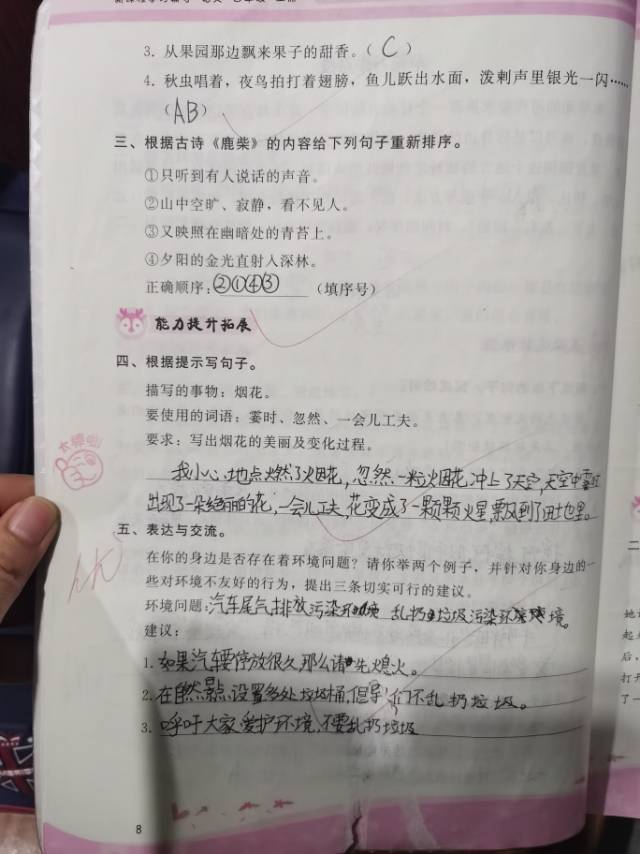 3. 从果园那边飘来果子的甜香。（ C ）
4. 秋虫唱着，夜鸟拍打着翅膀，鱼儿跃出水面，泼剌声里银光一闪……
（AB）
三、根据古诗《鹿柴》的内容给下列句子重新排序。
①只听到有人说话的声音。
②山中空旷、寂静，看不见人。
③又映照在幽暗处的青苔上。
④夕阳的金光直射入深林。
正确顺序：②①④③（填序号）
能力提升拓展
四、根据提示写句子。
描写的事物：烟花。
要使用的词语：霎时、忽然、一会儿工夫。
要求：写出烟花的美丽及变化过程。
太棒啦!
我小心地点燃了烟花，忽然一粒火烟花冲上了天空，天空中霎时
出现了一朵绝丽的花，一会儿工夫，花变成了一颗颗火星，飘到了田地里。
五、表达与交流。
在你的身边是否存在着环境问题？请你举两个例子，并针对你身边的一
些对环境不友好的行为，提出三条切实可行的建议。
环境问题：汽车尾气排放污染环境 乱扔垃圾污染环境。
建议：
1. 如果汽车要停放很久，那么请先熄火。
2. 在自然景点设置多处垃圾桶，但导们不乱扔垃圾。
3. 呼吁大家爱护环境，不要乱扔垃圾
8